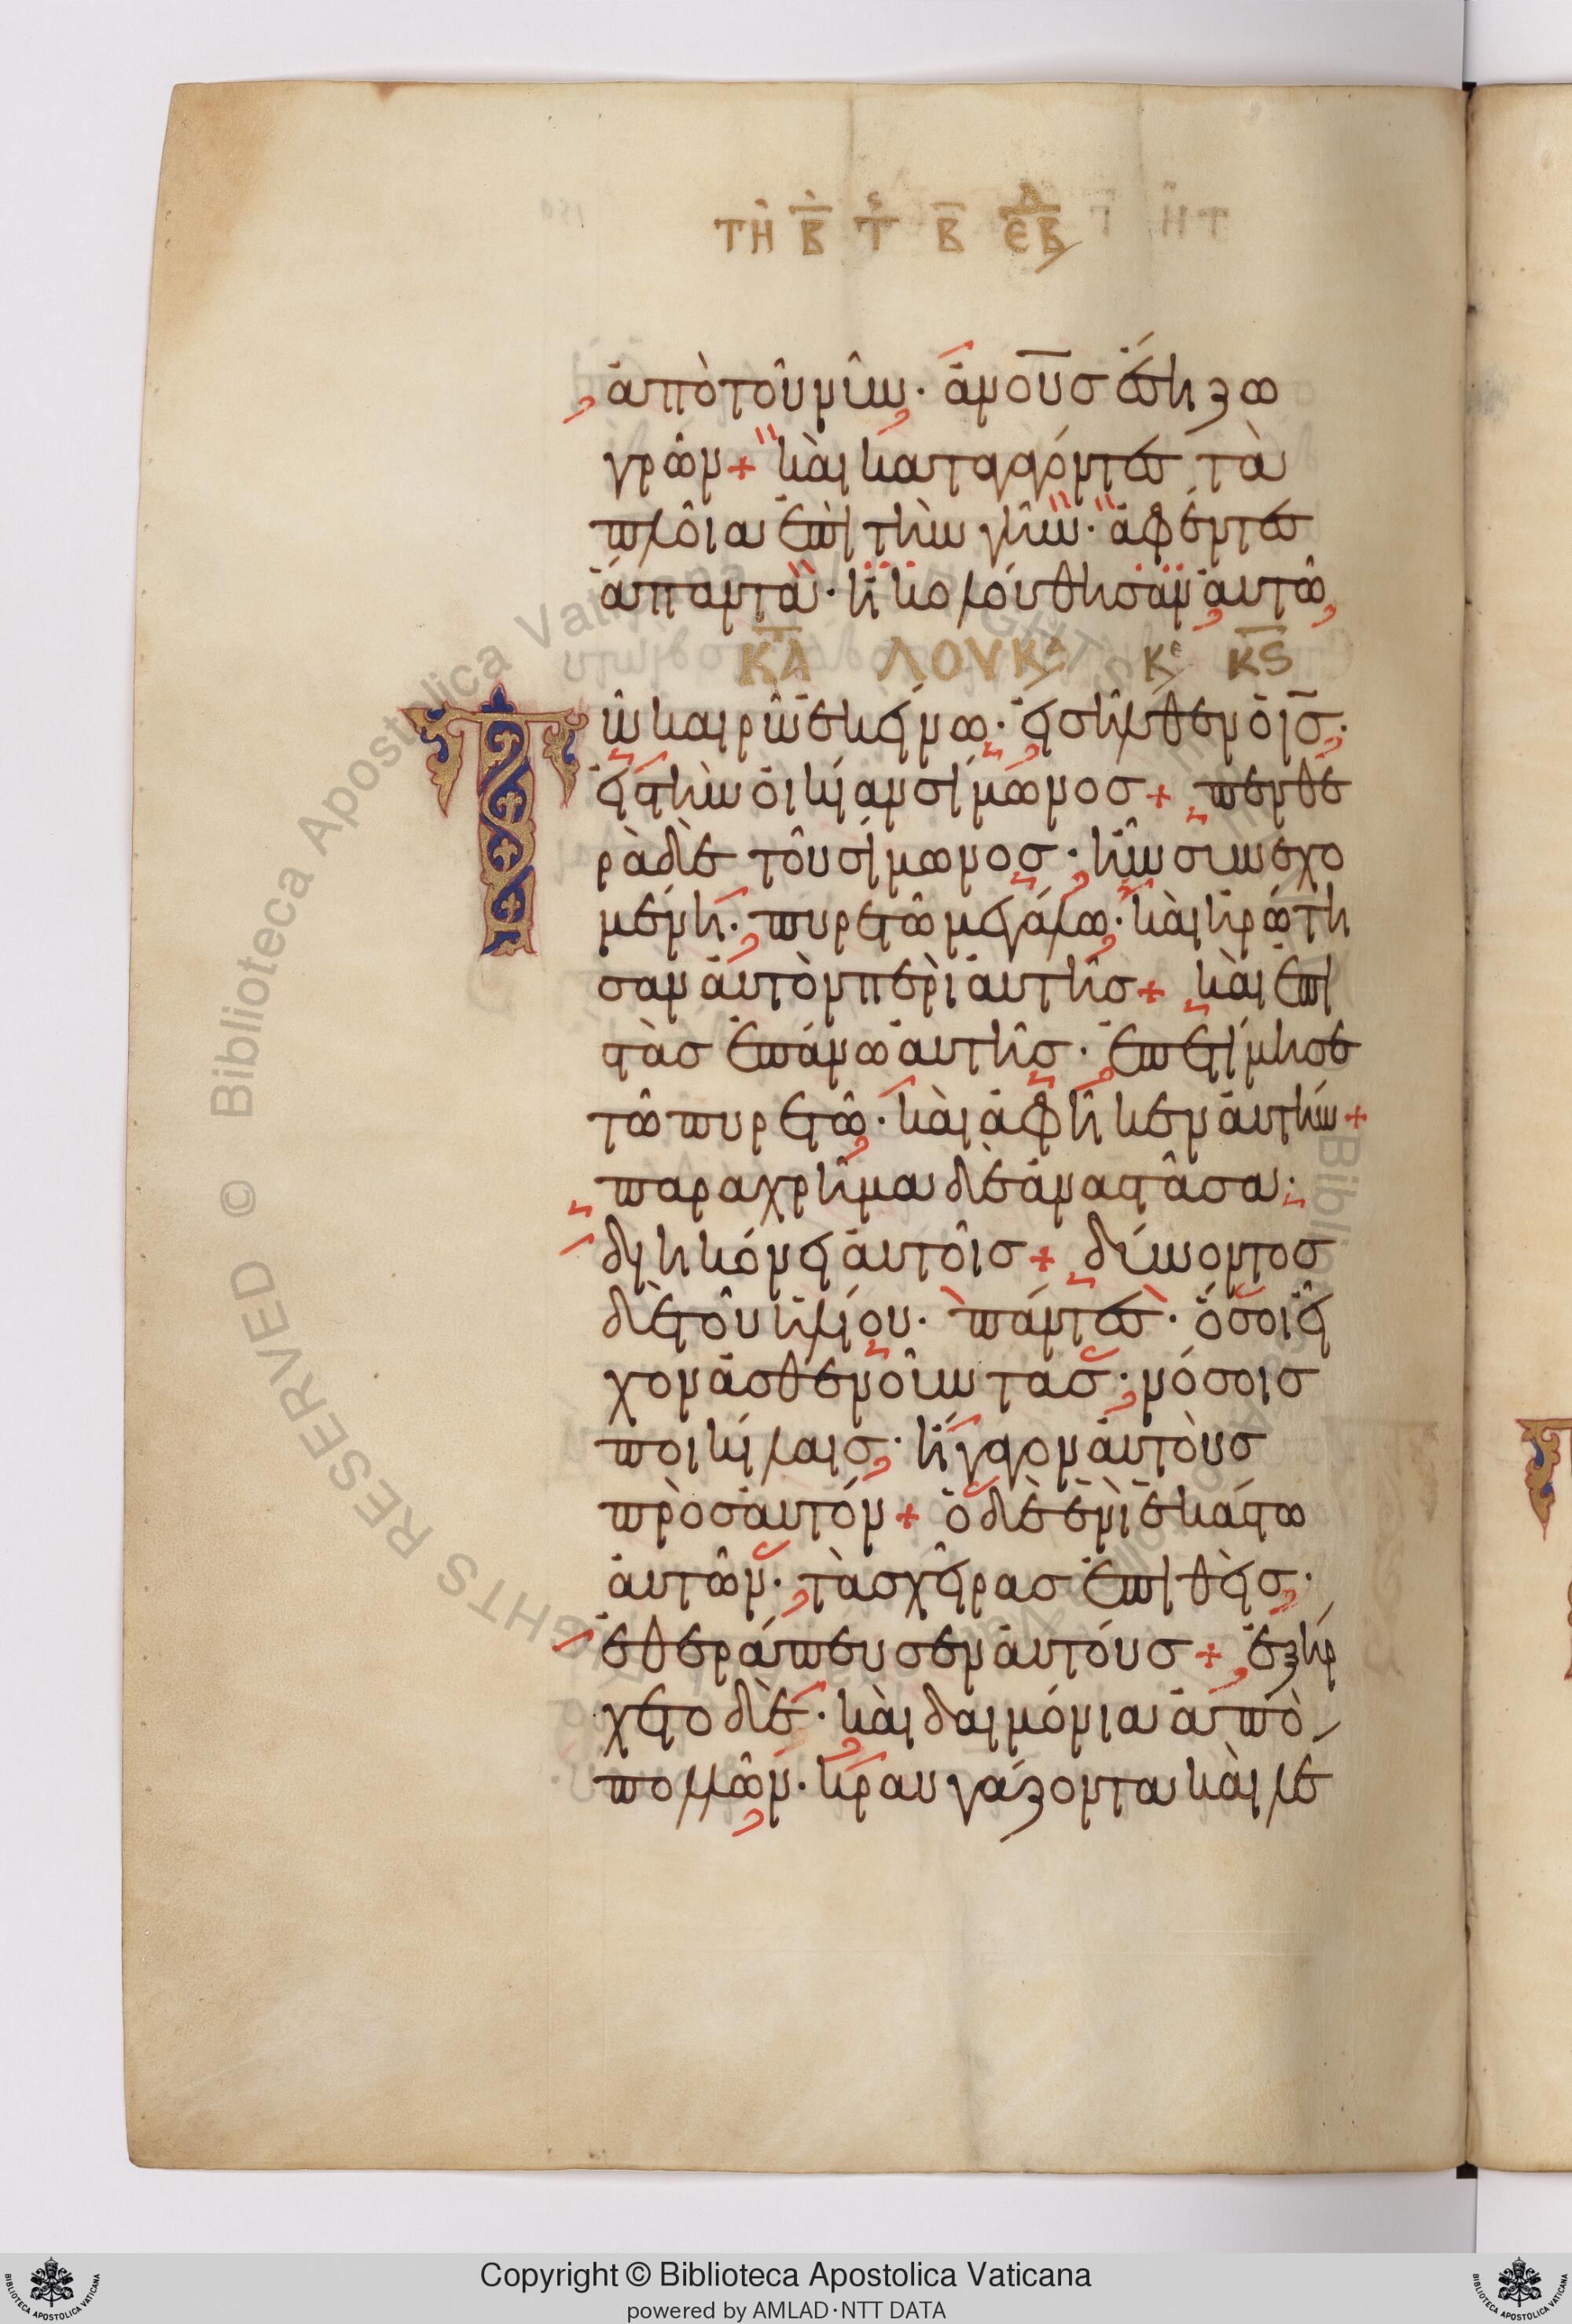 ΤΗ Β ΤΗϹ Β ΕΒΔ
ἀπὸ τοῦ νῦν· ἀν̅ο̅υ̅σ ἔση ζω
γρῶν + καὶ καταγαγόντες τὰ
πλοῖα ἐπὶ τὴν γῆν· ἀφέντες
ἅπαντα· ἠκολούθησαν αὐτῶ
ΚΑΤ ΛΟΥΚΑ ΚΕ ΚϚ
Τῶ καιρῶ ἐκείνω· εἰσῆλθεν ὁ ισ̅·
εἰς τὴν οἰκίαν σίμωνος + πενθε
ρὰ δὲ τοῦ σίμωνος· ἦν συνεχο
μένη· πυρετῶ μεγάλω· καὶ ἠρώτη
σαν αὐτὸν περὶ αὐτῆς + καὶ ἐπι
στὰς ἐπάνω αὐτῆς· ἐπετίμησε
τῶ πυρετῶ· καὶ ἀφῆκεν αὐτήν +
παραχρῆμα δὲ ἀναστᾶσα·
διηκόνει αὐτοῖς + δύνοντος
δὲ τοῦ ἡλίου· πάντες· ὅσοι εἶ
χον ἀσθενοῦντας· νόσοις
ποικίλαις· ἤγαγον αὐτοὺς
πρὸς αὐτόν + ὁ δὲ ἑνὶ ἑκάστω
αὐτῶν· τὰς χεῖρας ἐπιθεὶς·
ἐθεράπευσεν αὐτούς + ἐξήρ
χετο δὲ· καὶ δαιμόνια ἀπὸ
πολλῶν· κραυγάζοντα καὶ λέ
Copyright © Biblioteca Apostolica Vaticana
powered by AMLAD·NTT DATA